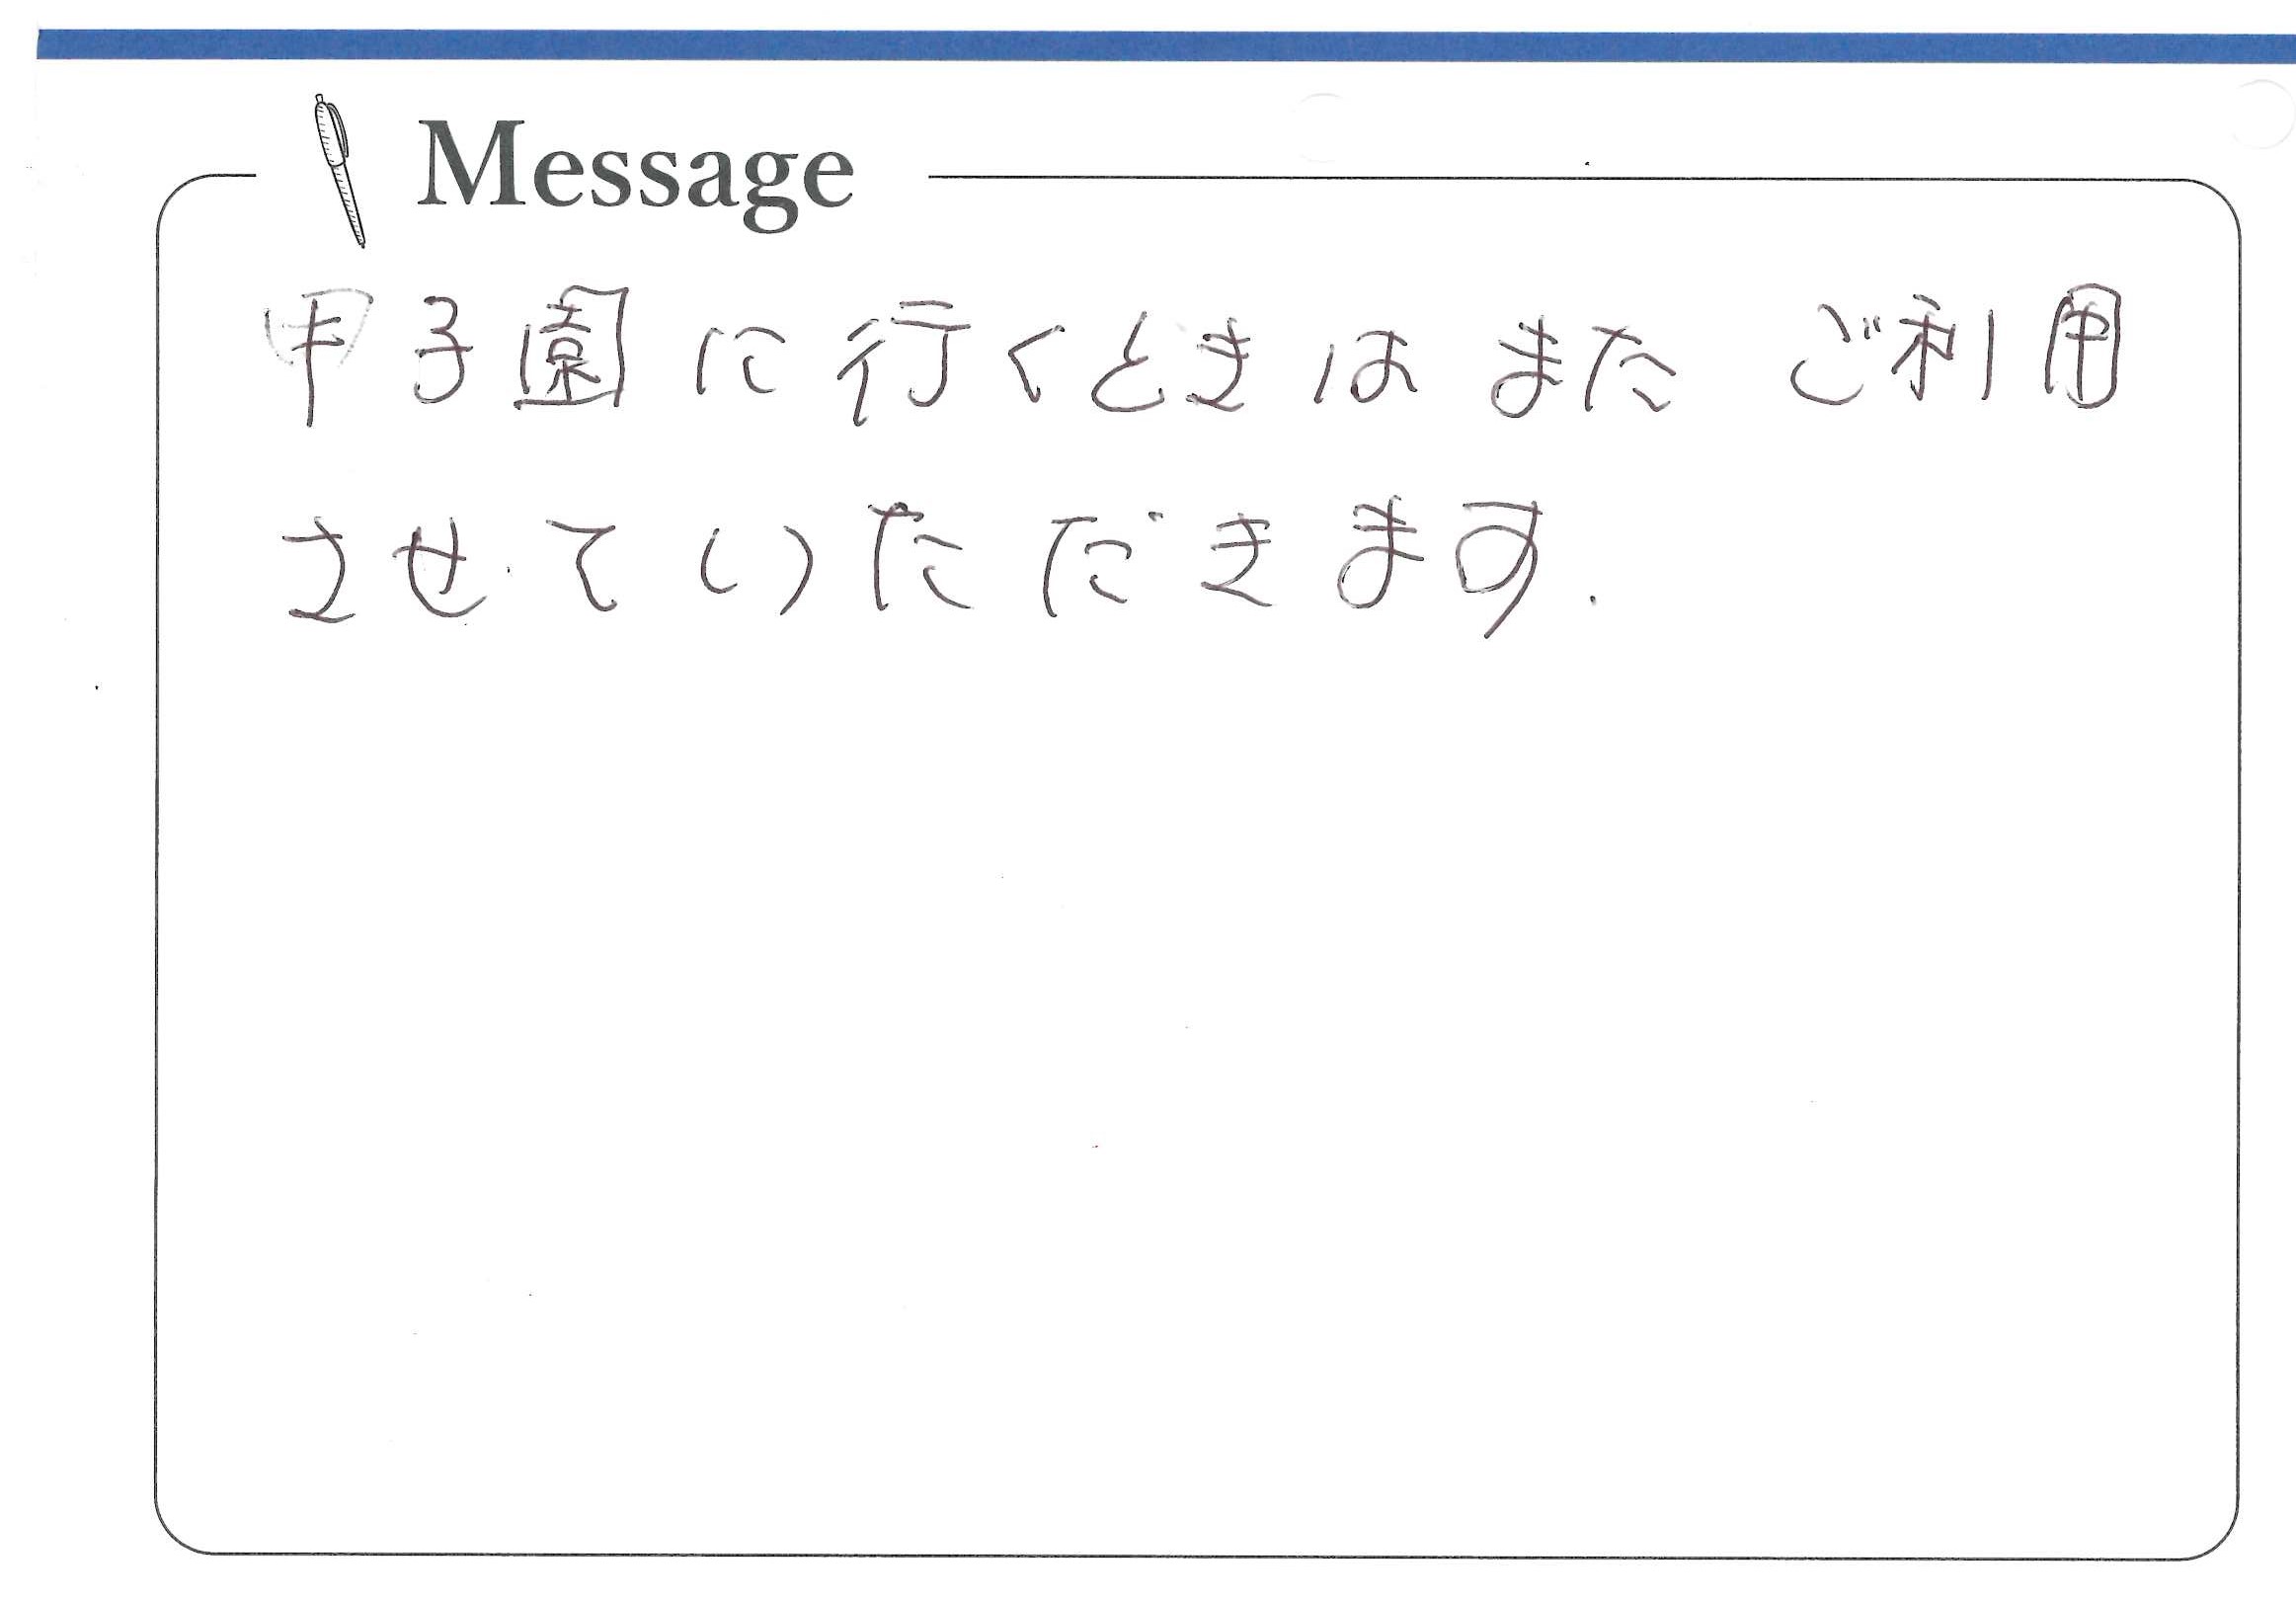 Message
甲子園に行くときは また ご利用
させていただきます.